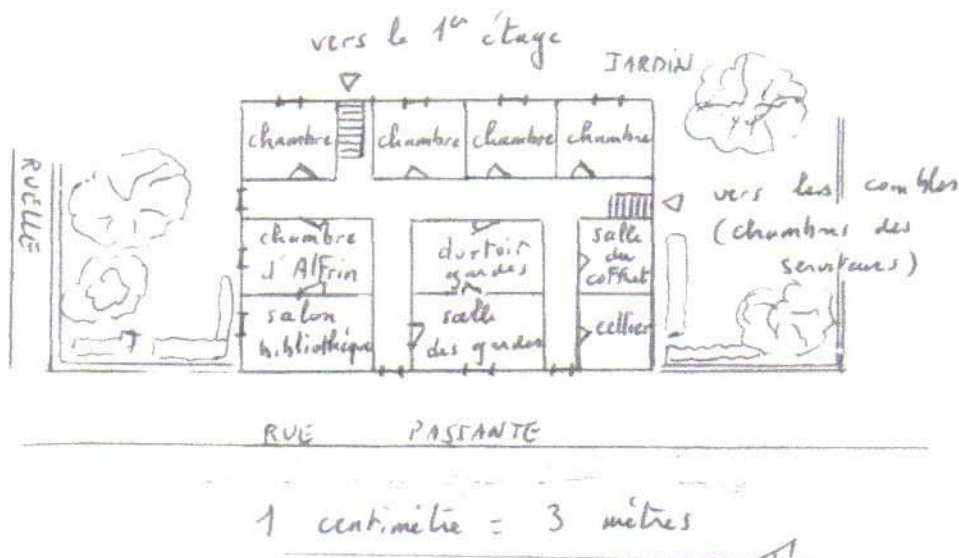 vers le 1er étage
JARDIN
chambre
chambre
chambre
chambre
RUELLE
vers les combles
(chambres des
serviteurs)
chambre
d'Alfrin
dortoir
gardes
salle
du
coffret
salon
bibliothèque
salle
des gardes
cellier
RUE PASSANTE
1 centimètre = 3 mètres